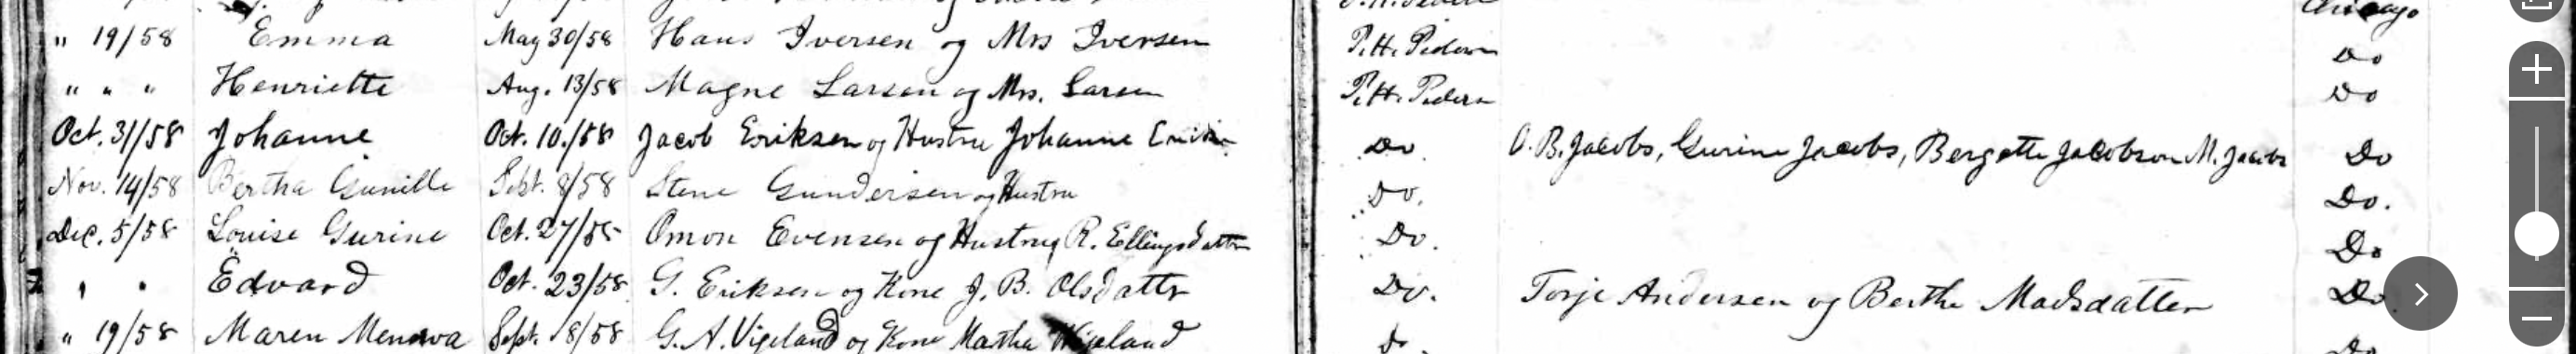 Chicago
" 19/58 Emma May 30/58 Hans Iversen og Mrs Iversen P. H. Pedersen Do
" " " Henriette Aug. 13/58 Magne Larsen og Mrs. Larsen P. H. Pedersen Do
Oct. 31/58 Johanne Oct. 10./58 Jacob Eriksen og Hustru Johanne Do O. B. Jacobs, Gurine Jacobs, Bergette Jacobson M. Jacobs Do
Nov. 14/58 Bertha Gunille Sept. 8/58 Stene Gundersen og Hustru Do. Do.
Dec. 5/58 Louise Gurine Oct. 27/58 Omon Evensen og Hustru R. Ellingsdatter Do. Do
" " Edvard Oct. 23/58 G. Eriksen og Kone J. B. Olsdatter Do. Torje Andersen og Berthe Madsdatter Do
" 19/58 Maren Sept. 18/58 G. A. Vigeland og Kone Martha Wigeland Do